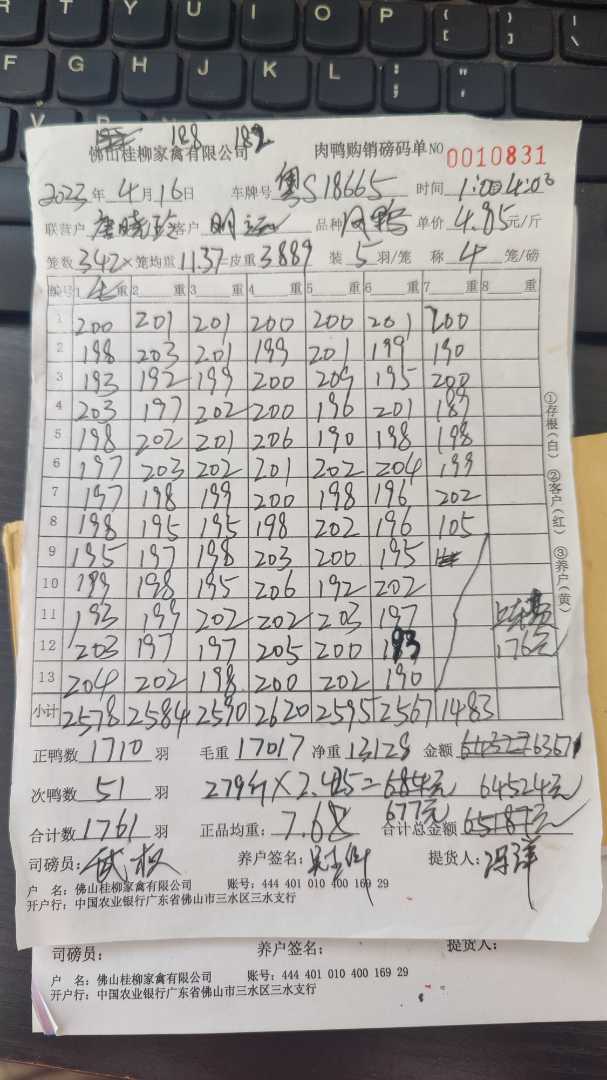 R T Y U I O P { [ } ]
F G H J K L : ; " '
V
188 182
佛山桂柳家禽有限公司 肉鸭购销磅码单 NO 0010831
2023年4月16日 车牌号 粤S18665 时间 1:00 4:03
联营户 唐晓玲 客户 明运 品种 单价 4.85元/斤
笼数342×笼均重11.37=皮重3889 装5羽/笼 称4笼/磅
编号 1 重 2 重 3 重 4 重 5 重 6 重 7 重 8 重
1 200 201 201 200 200 201 200
2 198 203 201 199 201 199 190
3 193 192 199 200 209 195 200
4 203 197 202 200 196 201 189
5 198 202 201 206 190 198 198
6 197 203 202 201 202 204 199
7 197 198 199 200 198 196 202
8 198 195 195 198 202 196 105
9 195 197 198 203 200 195
10 199 198 195 206 192 202
11 193 199 202 202 203 197
12 203 197 197 205 200 193 176元
13 204 202 198 200 202 190
小计 2578 2584 2590 2620 2595 2567 1483
①存根(白) ②客户(红) ③养户(黄)
正鸭数1710羽 毛重17017 净重13128 金额 63671
次鸭数51羽 279斤×2.425=684元 64524元
677元
合计数1761羽 正品均重:7.68 合计总金额65187元
司磅员: 武权 养户签名: 提货人: 冯洋
户 名:佛山桂柳家禽有限公司 账号:444 401 010 400 169 29
开户行:中国农业银行广东省佛山市三水区三水支行
司磅员: 养户签名: 提货人:
户 名:佛山桂柳家禽有限公司 账号:444 401 010 400 169 29
开户行:中国农业银行广东省佛山市三水区三水支行